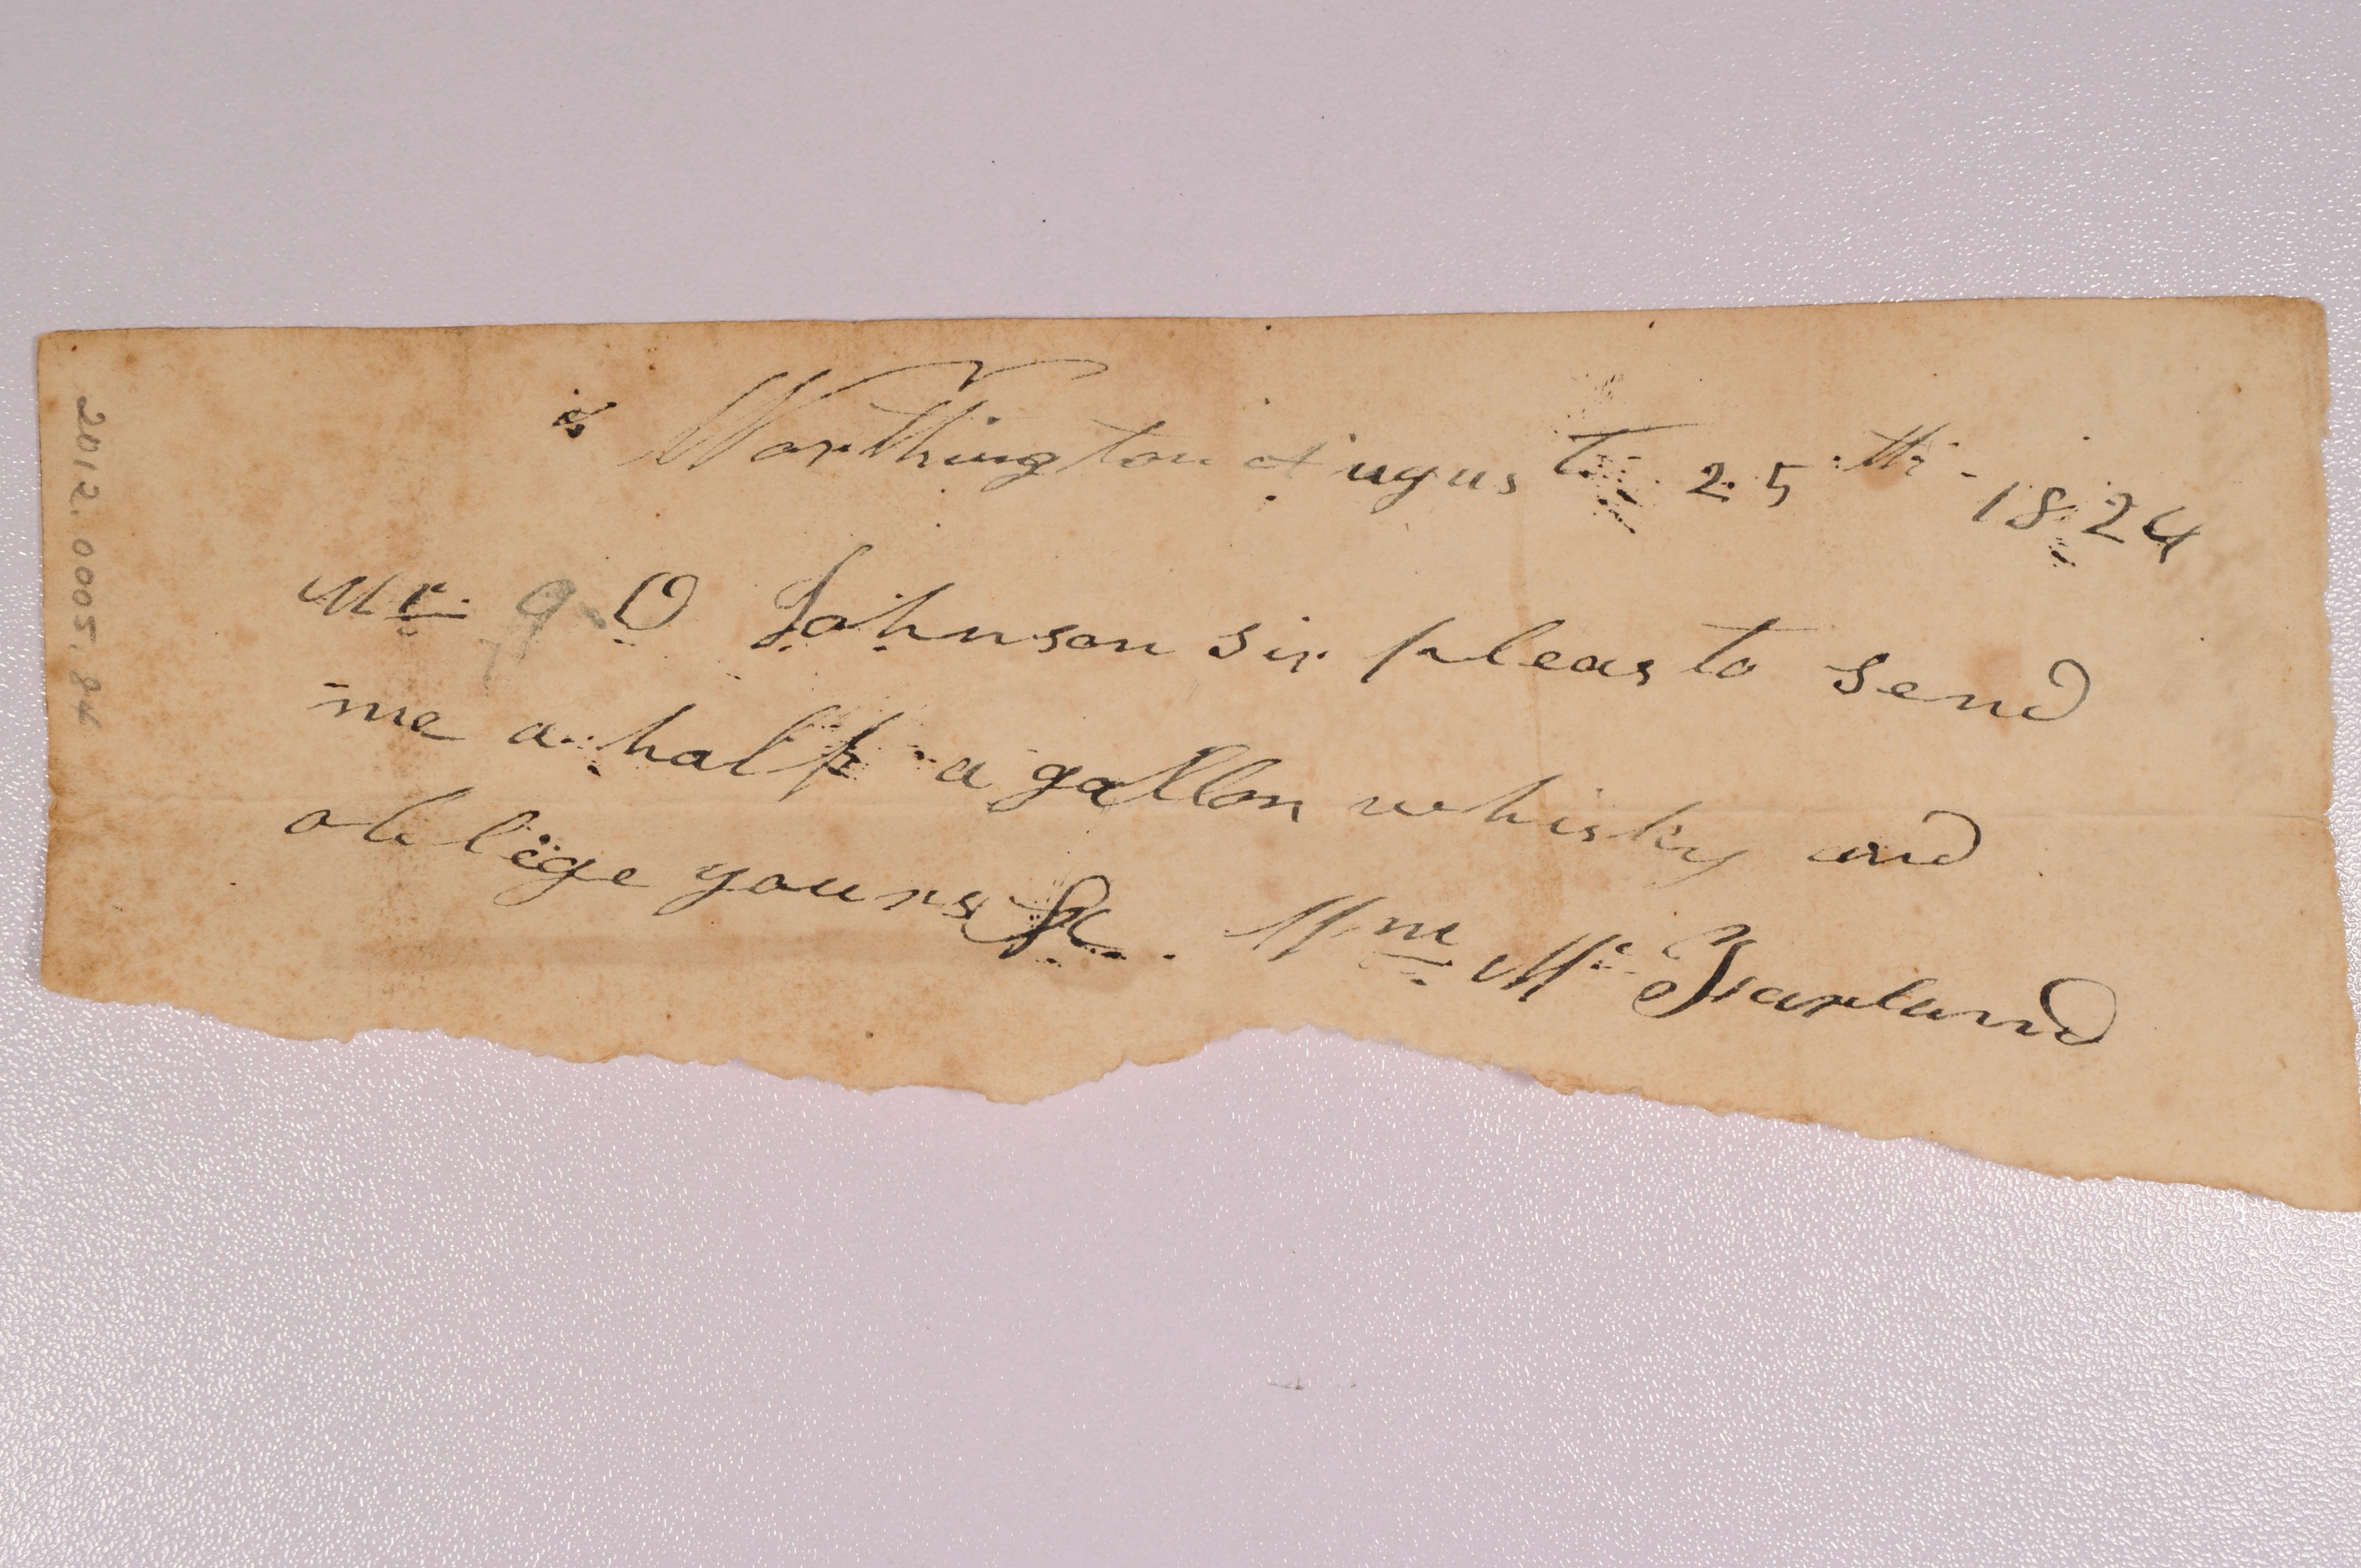 Worthington August 25th - 1824
Mr O Johnson sir pleas to send
me a half a gallon whisky and
oblige yours &c. Wm Mc Farland
2012.0005.84